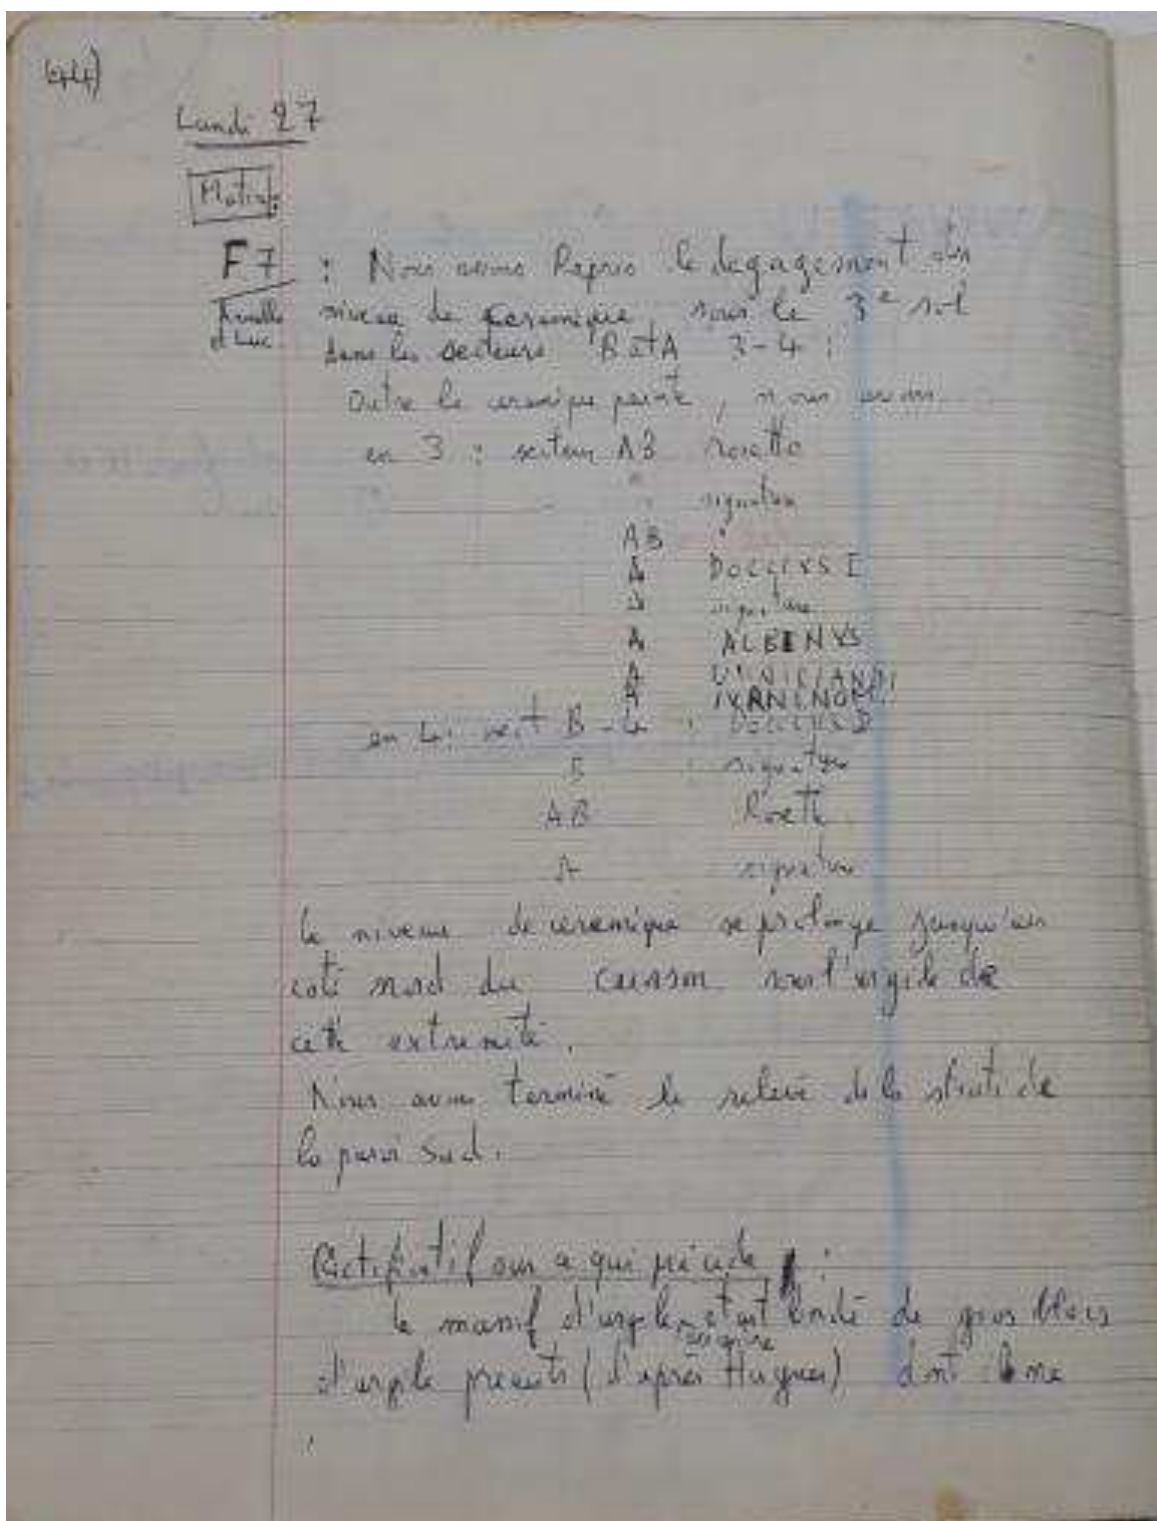 44)
Lundi 27
Matin:
F7 : Nous avons Repris le degagement du
et Luc niveau de ceramique, sous le 3e sol
dans les secteurs B et A 3-4 :
Outre la ceramique peinte, nous avons
en 3 : secteur AB rosette
" signature
AB "
A DOCCIVS I
signature
A ALBINVS
A
A
en 4: sect B-4 :
B : signature
AB Rosette
A signature
Le niveau de ceramique se prolonge jusqu'au
coté nord du caisson sur l'argile de
cette extremité.
Nous avons terminé le relevé de la strati de
la paroi sud.
Rectificatif sur ce qui précède :
le massif d'argile etait bordé de gros blocs
d'argile (d'après Hugues) dont il ne